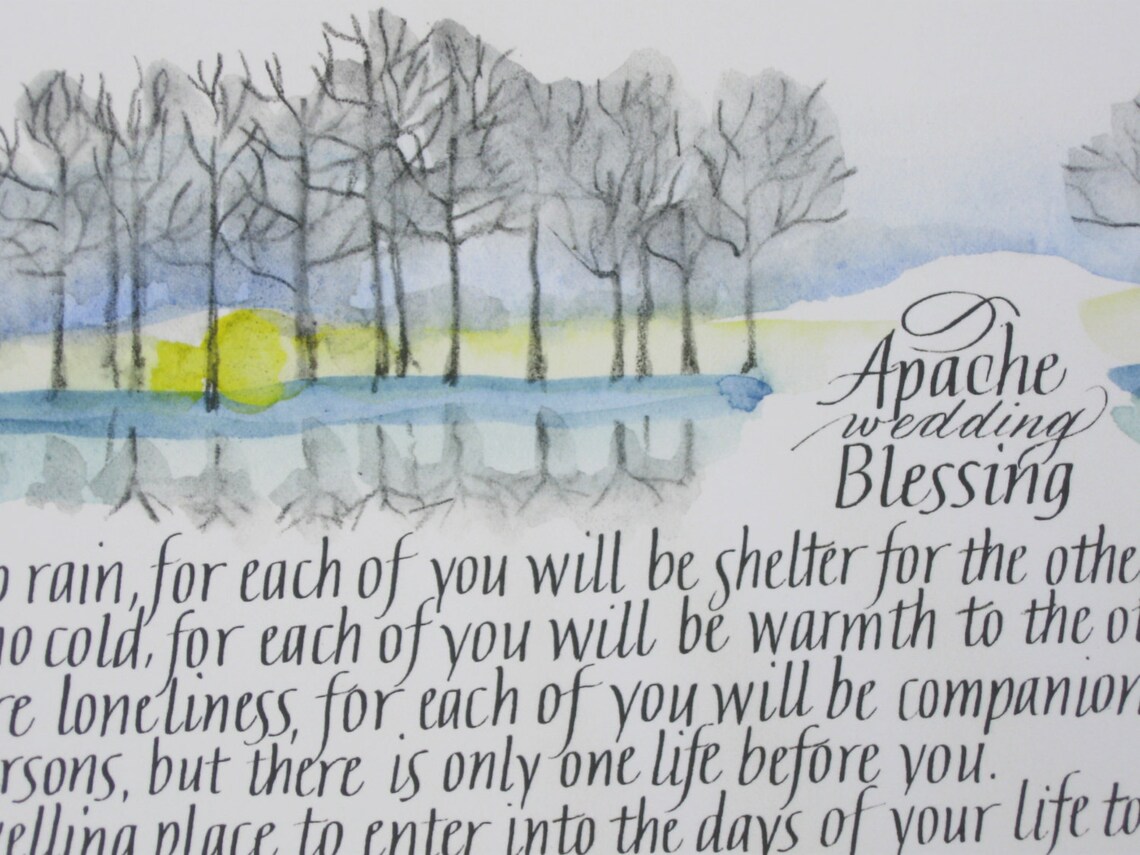 Apache
wedding
Blessing
rain, for each of you will be shelter for the
no cold, for each of you will be warmth to the
loneliness, for each of you will be companion
but there is only one life before you.
place to enter into the days of your life to